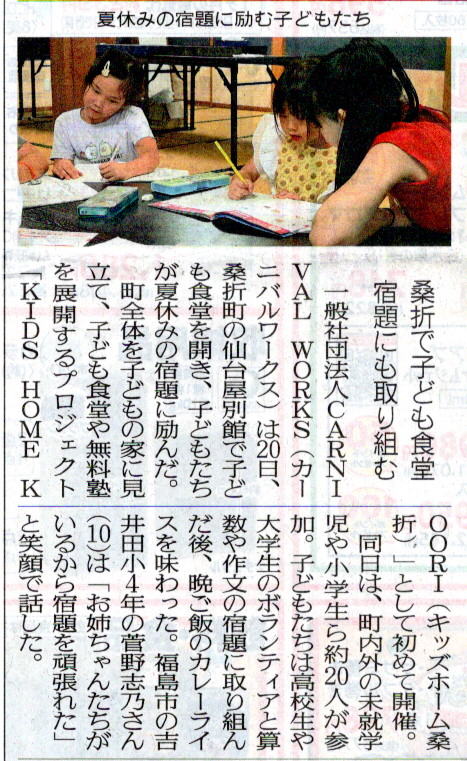 夏休みの宿題に励む子どもたち
桑折で子ども食堂
宿題にも取り組む
一般社団法人CARNI
VAL WORKS（カー
ニバルワークス）は20日、
桑折町の仙台屋別館で子ど
も食堂を開き、子どもたち
が夏休みの宿題に励んだ。
町全体を子どもの家に見
立て、子ども食堂や無料塾
を展開するプロジェクト
「KIDS HOME K
OORI（キッズホーム桑
折）」として初めて開催。
同日は、町内外の未就学
児や小学生ら約20人が参
加。子どもたちは高校生や
大学生のボランティアと算
数や作文の宿題に取り組ん
だ後、晩ご飯のカレーライ
スを味わった。福島市の吉
井田小4年の菅野志乃さん
（10）は「お姉ちゃんたちが
いるから宿題を頑張れた」
と笑顔で話した。